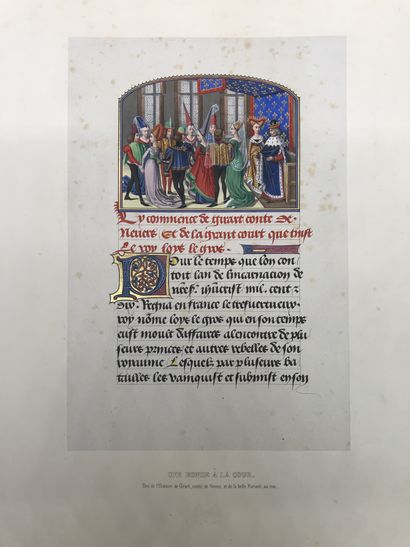 Cy commence de girart conte de
Neuers Et de la grant court que tinst
Le roy loys le gros
Our le temps que lon con
toit lan de lincarnation de
mil. cent z
dix. Regna en france le tresvertueux
roy nome loys le gros qui en son temps
eust moult daffaires alencontre de plu
seurs princes et autres rebelles de son
royaume Lesquelz par pluseurs ba
tailles les vainquist et submist en son
UNE RONDE À LA COUR.
Tiré de l'Histoire de Gérart, comte de Nevers, et de la belle Euriant, sa mie.